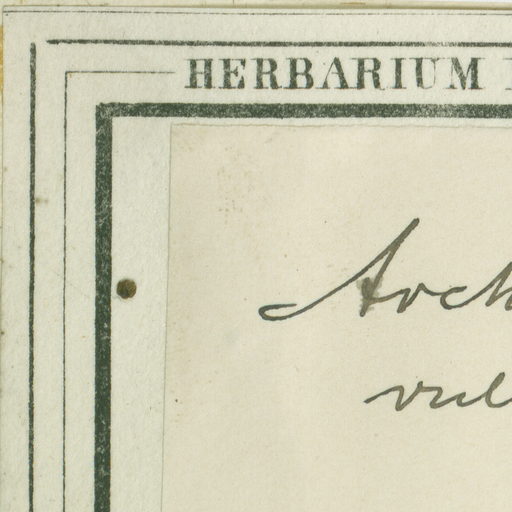 HERBARIUM
Arch
vul